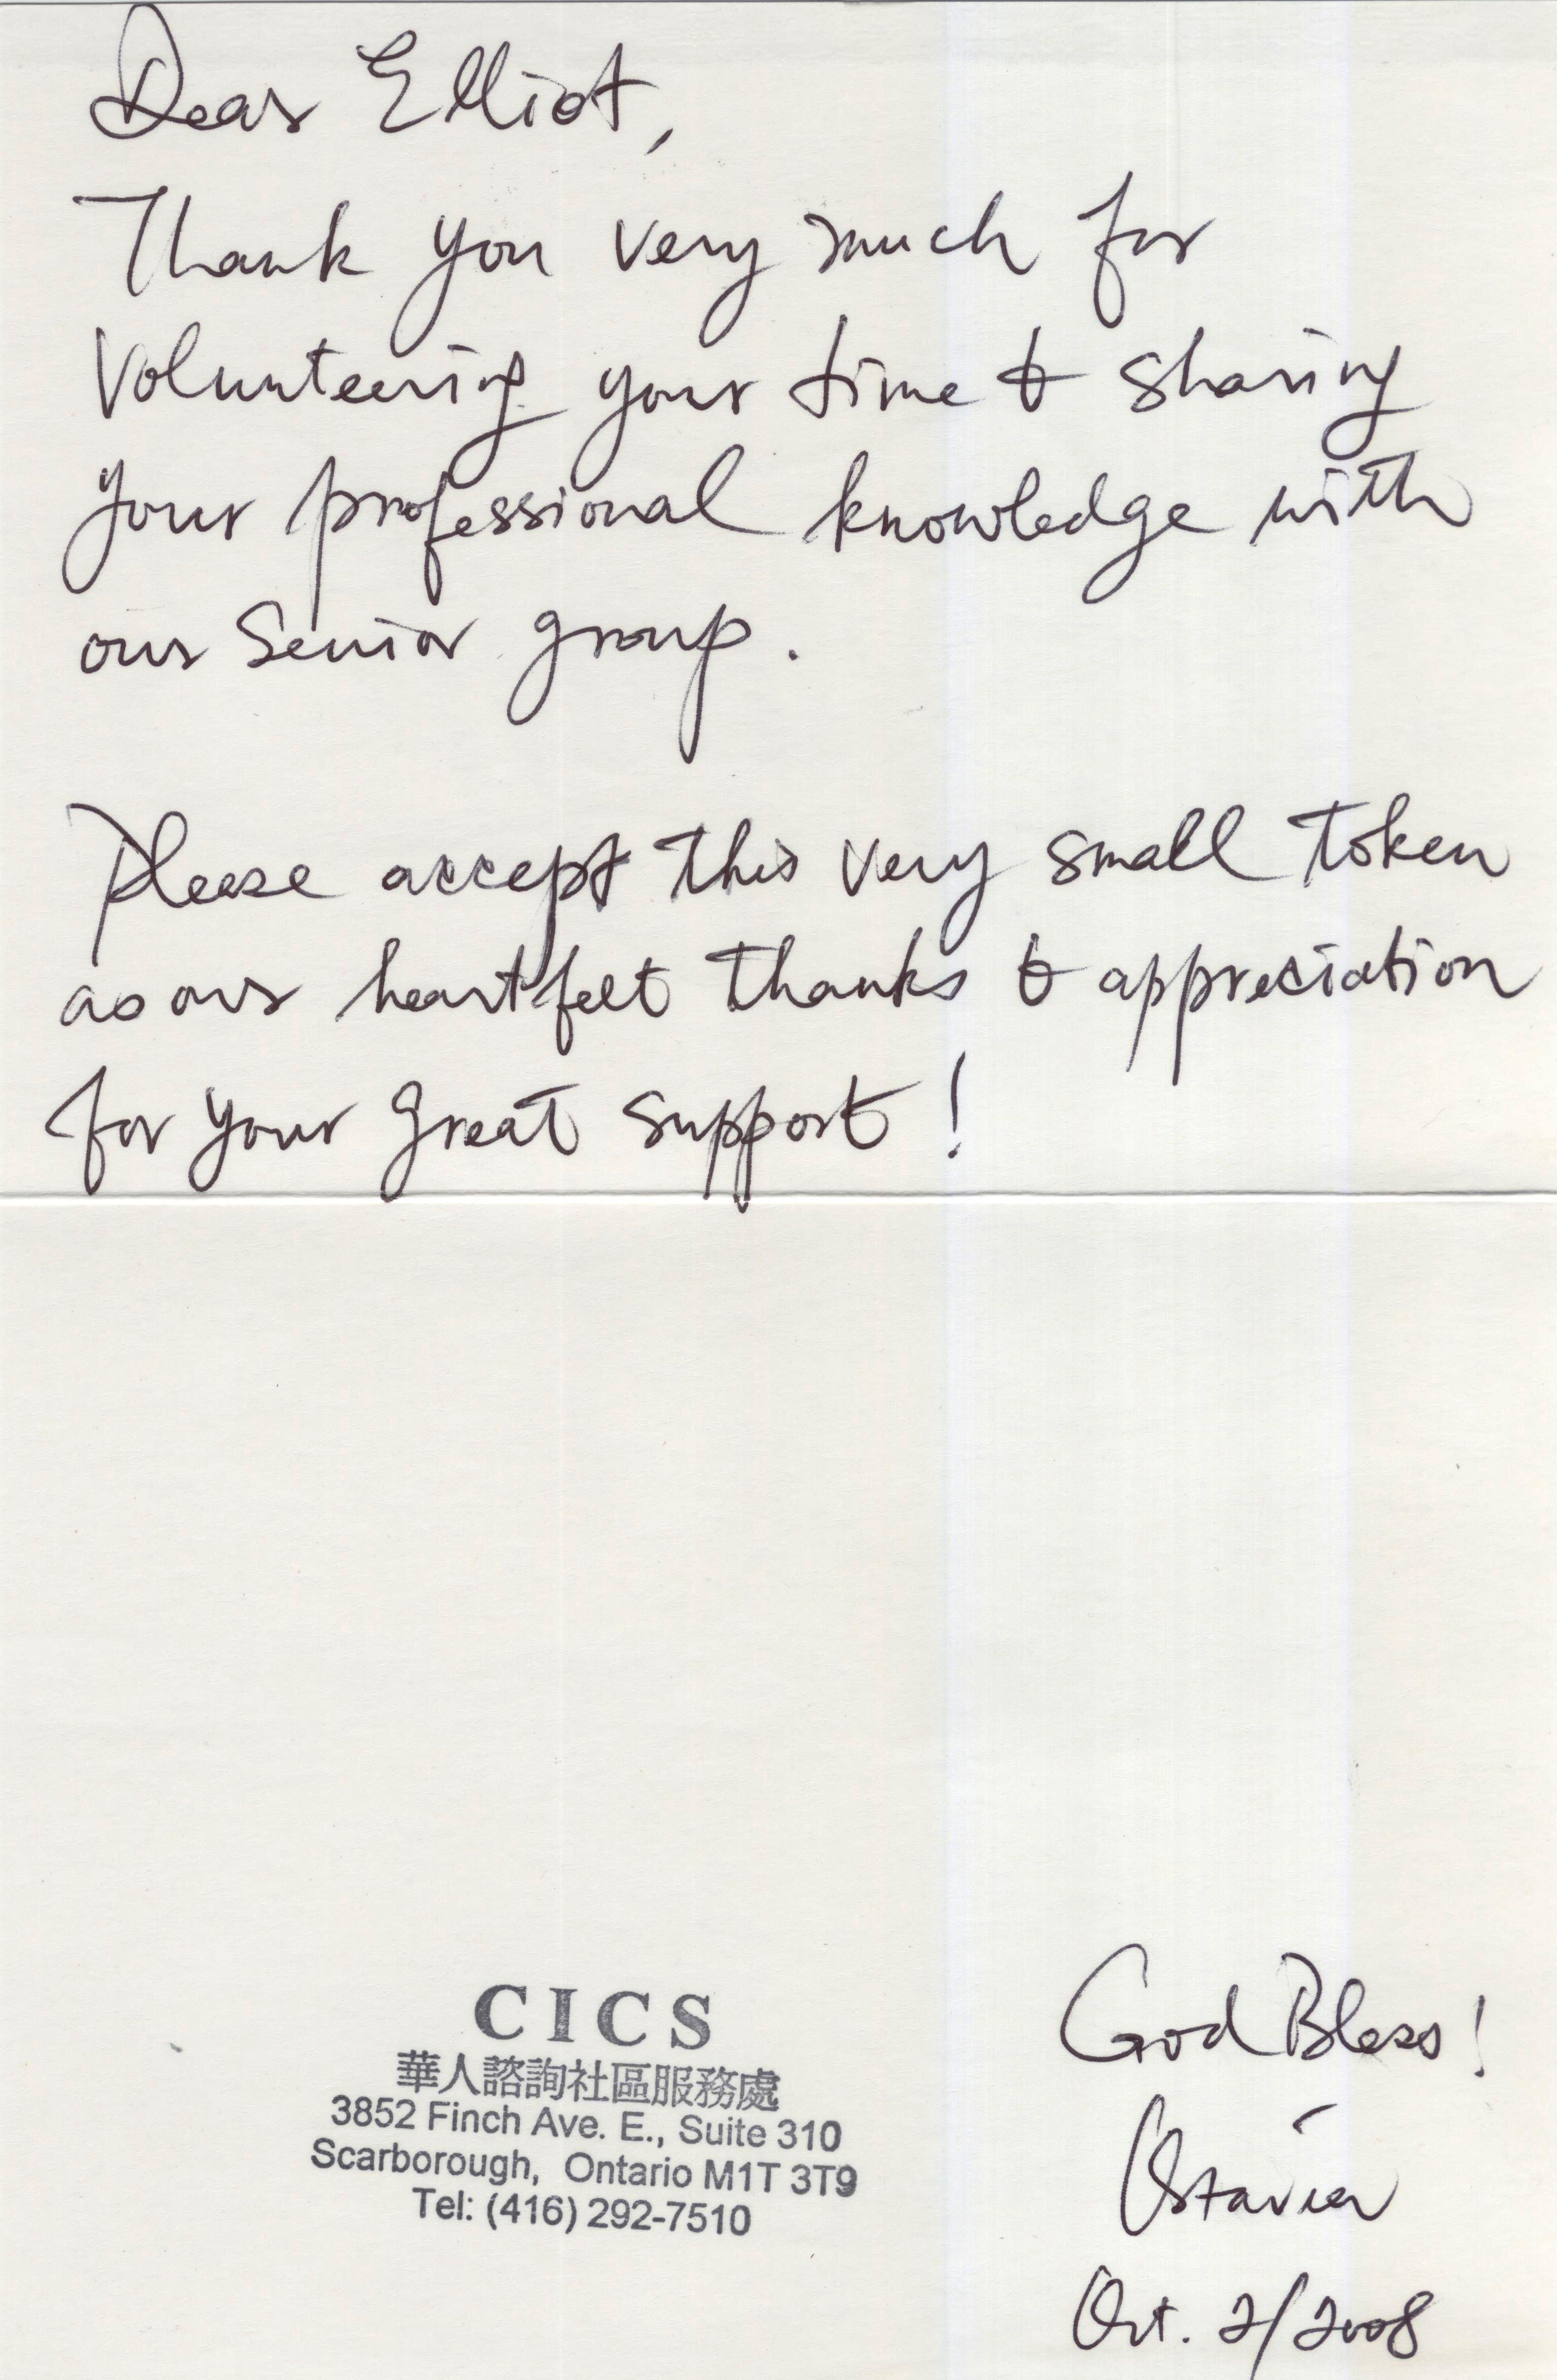 Dear Elliot,
Thank you very much for
volunteering your time & sharing
your professional knowledge with
our Senior group.
Please accept this very small token
as our heartfelt thanks & appreciation
for your great support!
CICS
華人諮詢社區服務處
3852 Finch Ave. E., Suite 310
Scarborough, Ontario M1T 3T9
Tel: (416) 292-7510
God Bless!
Oct. 2/2008